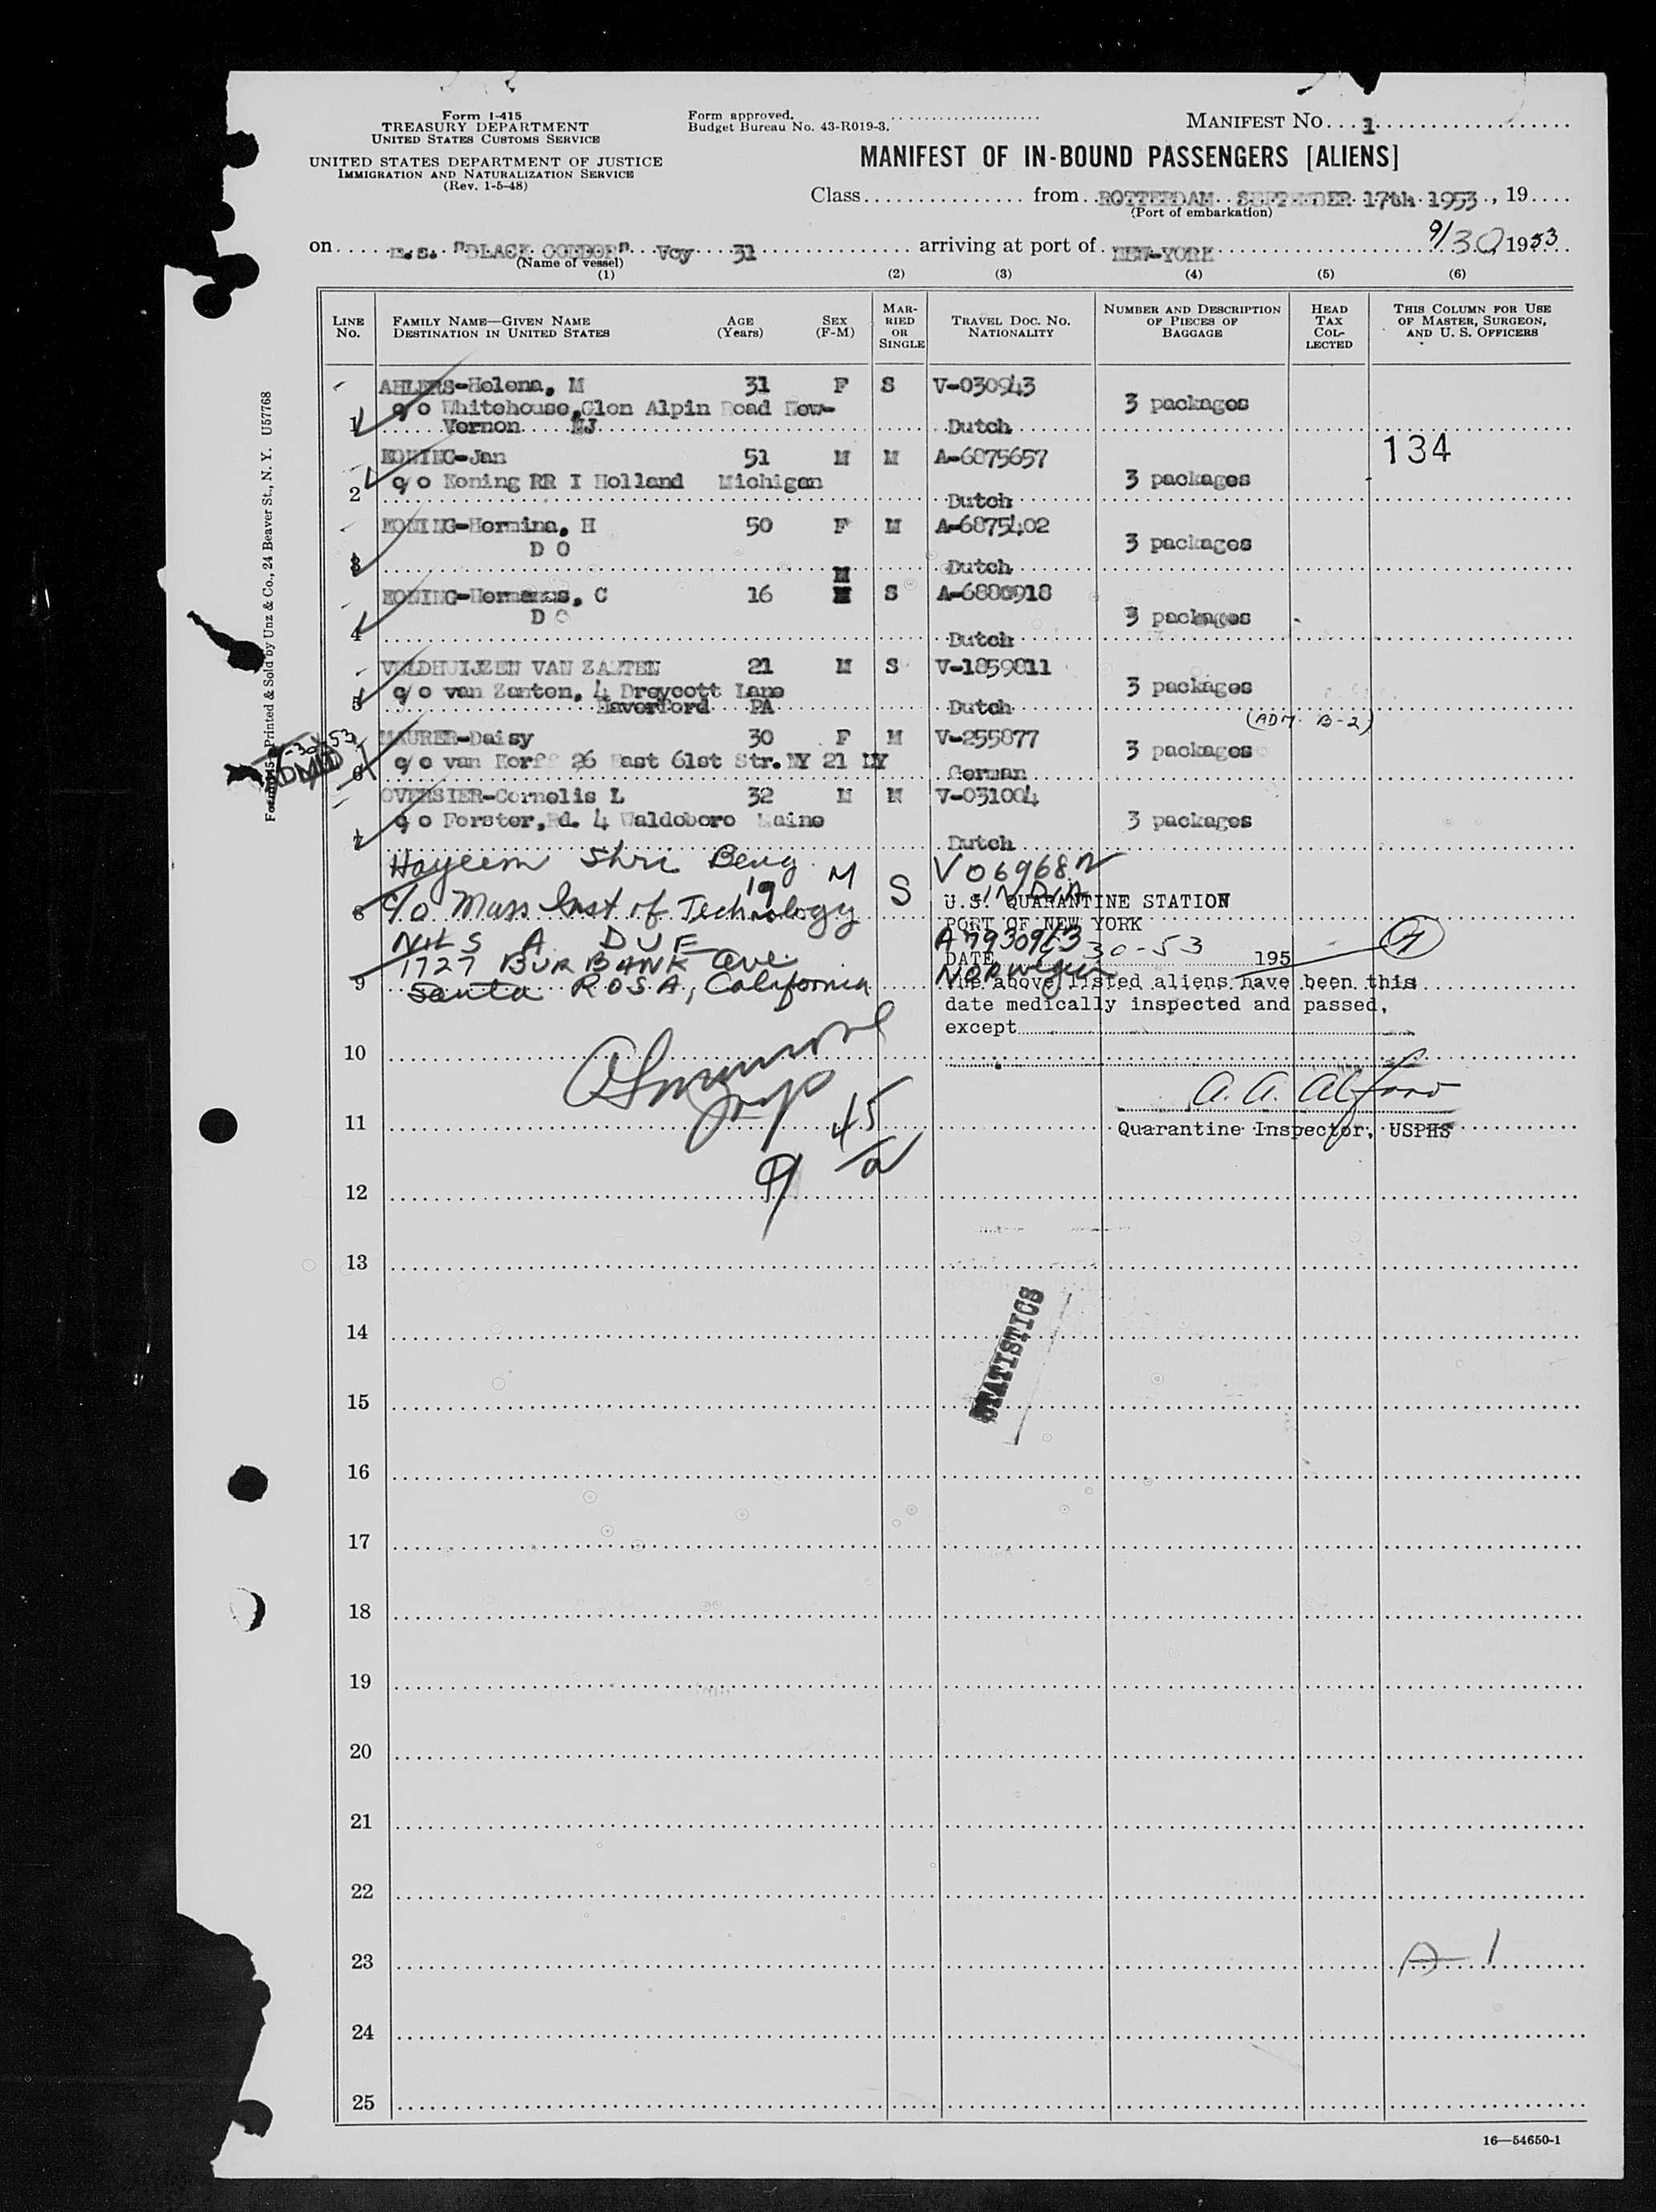 Form I-415
TREASURY DEPARTMENT
UNITED STATES CUSTOMS SERVICE
UNITED STATES DEPARTMENT OF JUSTICE
IMMIGRATION AND NATURALIZATION SERVICE
(Rev. 1-5-48)
Form approved.
Budget Bureau No. 43-R019-3.
MANIFEST No. 1
MANIFEST OF IN-BOUND PASSENGERS [ALIENS]
Class from ROTTERDAM SEPTEMBER 17th 1953, 19
(Port of embarkation)
on m.s. "BLACK CONDOR" Voy 31 arriving at port of NEW-YORK 9/30, 1953
(Name of vessel)
(1) (2) (3) (4) (5) (6)
LINE No. FAMILY NAME—GIVEN NAME DESTINATION IN UNITED STATES AGE (Years) SEX (F-M) MARRIED OR SINGLE TRAVEL DOC. NO. NATIONALITY NUMBER AND DESCRIPTION OF PIECES OF BAGGAGE HEAD TAX COLLECTED THIS COLUMN FOR USE OF MASTER, SURGEON, AND U. S. OFFICERS
AHLERS-Helena, M 31 F S V-030943
c/o Whitehouse, Glen Alpin Road New- 3 packages
1 Vernon NJ Dutch
KONING-Jan 51 M M A-6875657 134
2 c/o Koning RR I Holland Michigan 3 packages
Dutch
KONING-Hermina, H 50 F M A-6875402
D O 3 packages
3 Dutch
M
KONING-Hermanus, C 16 S A-6880918
D O 3 packages
4 Dutch
VELDHUIJZEN VAN ZANTEN 21 M S V-1859811
c/o van Zanten, 4 Dreycott Lane 3 packages
5 Haverford PA Dutch
(ADM. B-2)
MAURER-Daisy 30 F M V-255877
c/o van Korff 26 East 61st Str. NY 21 NY 3 packages
6 German
-30-53
OVERSIER-Cornelis L 32 M M V-031004
c/o Forster, Rd. 4 Waldoboro Maine 3 packages
7 Dutch
Hayeem Shri Beny M S V06968
8 c/o Mass Inst of Technology 19 INDIA
U.S. QUARANTINE STATION
PORT OF NEW YORK
NILS A DUE A7930913
DATE 30-53 195
1727 BURBANK Ave. Norwegian
9 Santa ROSA, California
The above listed aliens have been this
date medically inspected and passed,
except
10
A. A. Alfano
11 Quarantine Inspector, USPHS
45
9/
12
13
STATISTICS
14
15
16
17
18
19
20
21
22
23 A-1
24
25
16—54650-1
Printed & Sold by Unz & Co., 24 Beaver St., N. Y. U57768